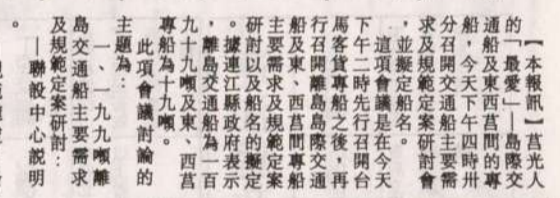 【本報訊】莒光人
的「最愛」—島際交
通船及東西莒間的專
船，今天下午四時卅
分召開交通船主要需
求及規範定案研討會
，並擬定船名。
這項會議是在今天
下午二時先行召開台
馬客貨專船之後，再
行召開離島島際交通
船及東、西莒間專船
主要需求及規範定案
研討以及船名的擬定
。據連江縣政府表示
，離島交通船為一百
九十九噸及東、西莒
專船為十九噸。
此項會議討論的
主題為：
一、一九九噸離
島交通船主要需求
及規範定案研討：
—聯設中心說明
。